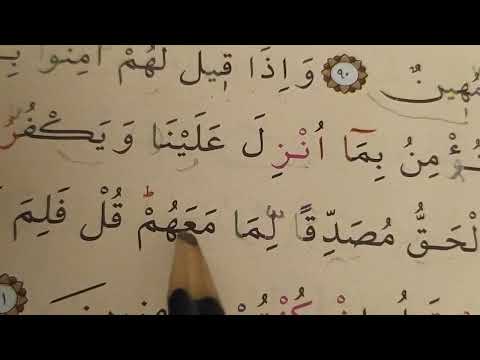 مُّهِينٌ ٩٠ وَإِذَا قِيلَ لَهُمْ آمِنُوا
مِنُ بِمَآ أُنْزِلَ عَلَيْنَا وَيَكْفُرُ
الْحَقُّ مُصَدِّقًا لِّمَا مَعَهُمْ ۗ قُلْ فَلِمَ
كُنْتُمْ